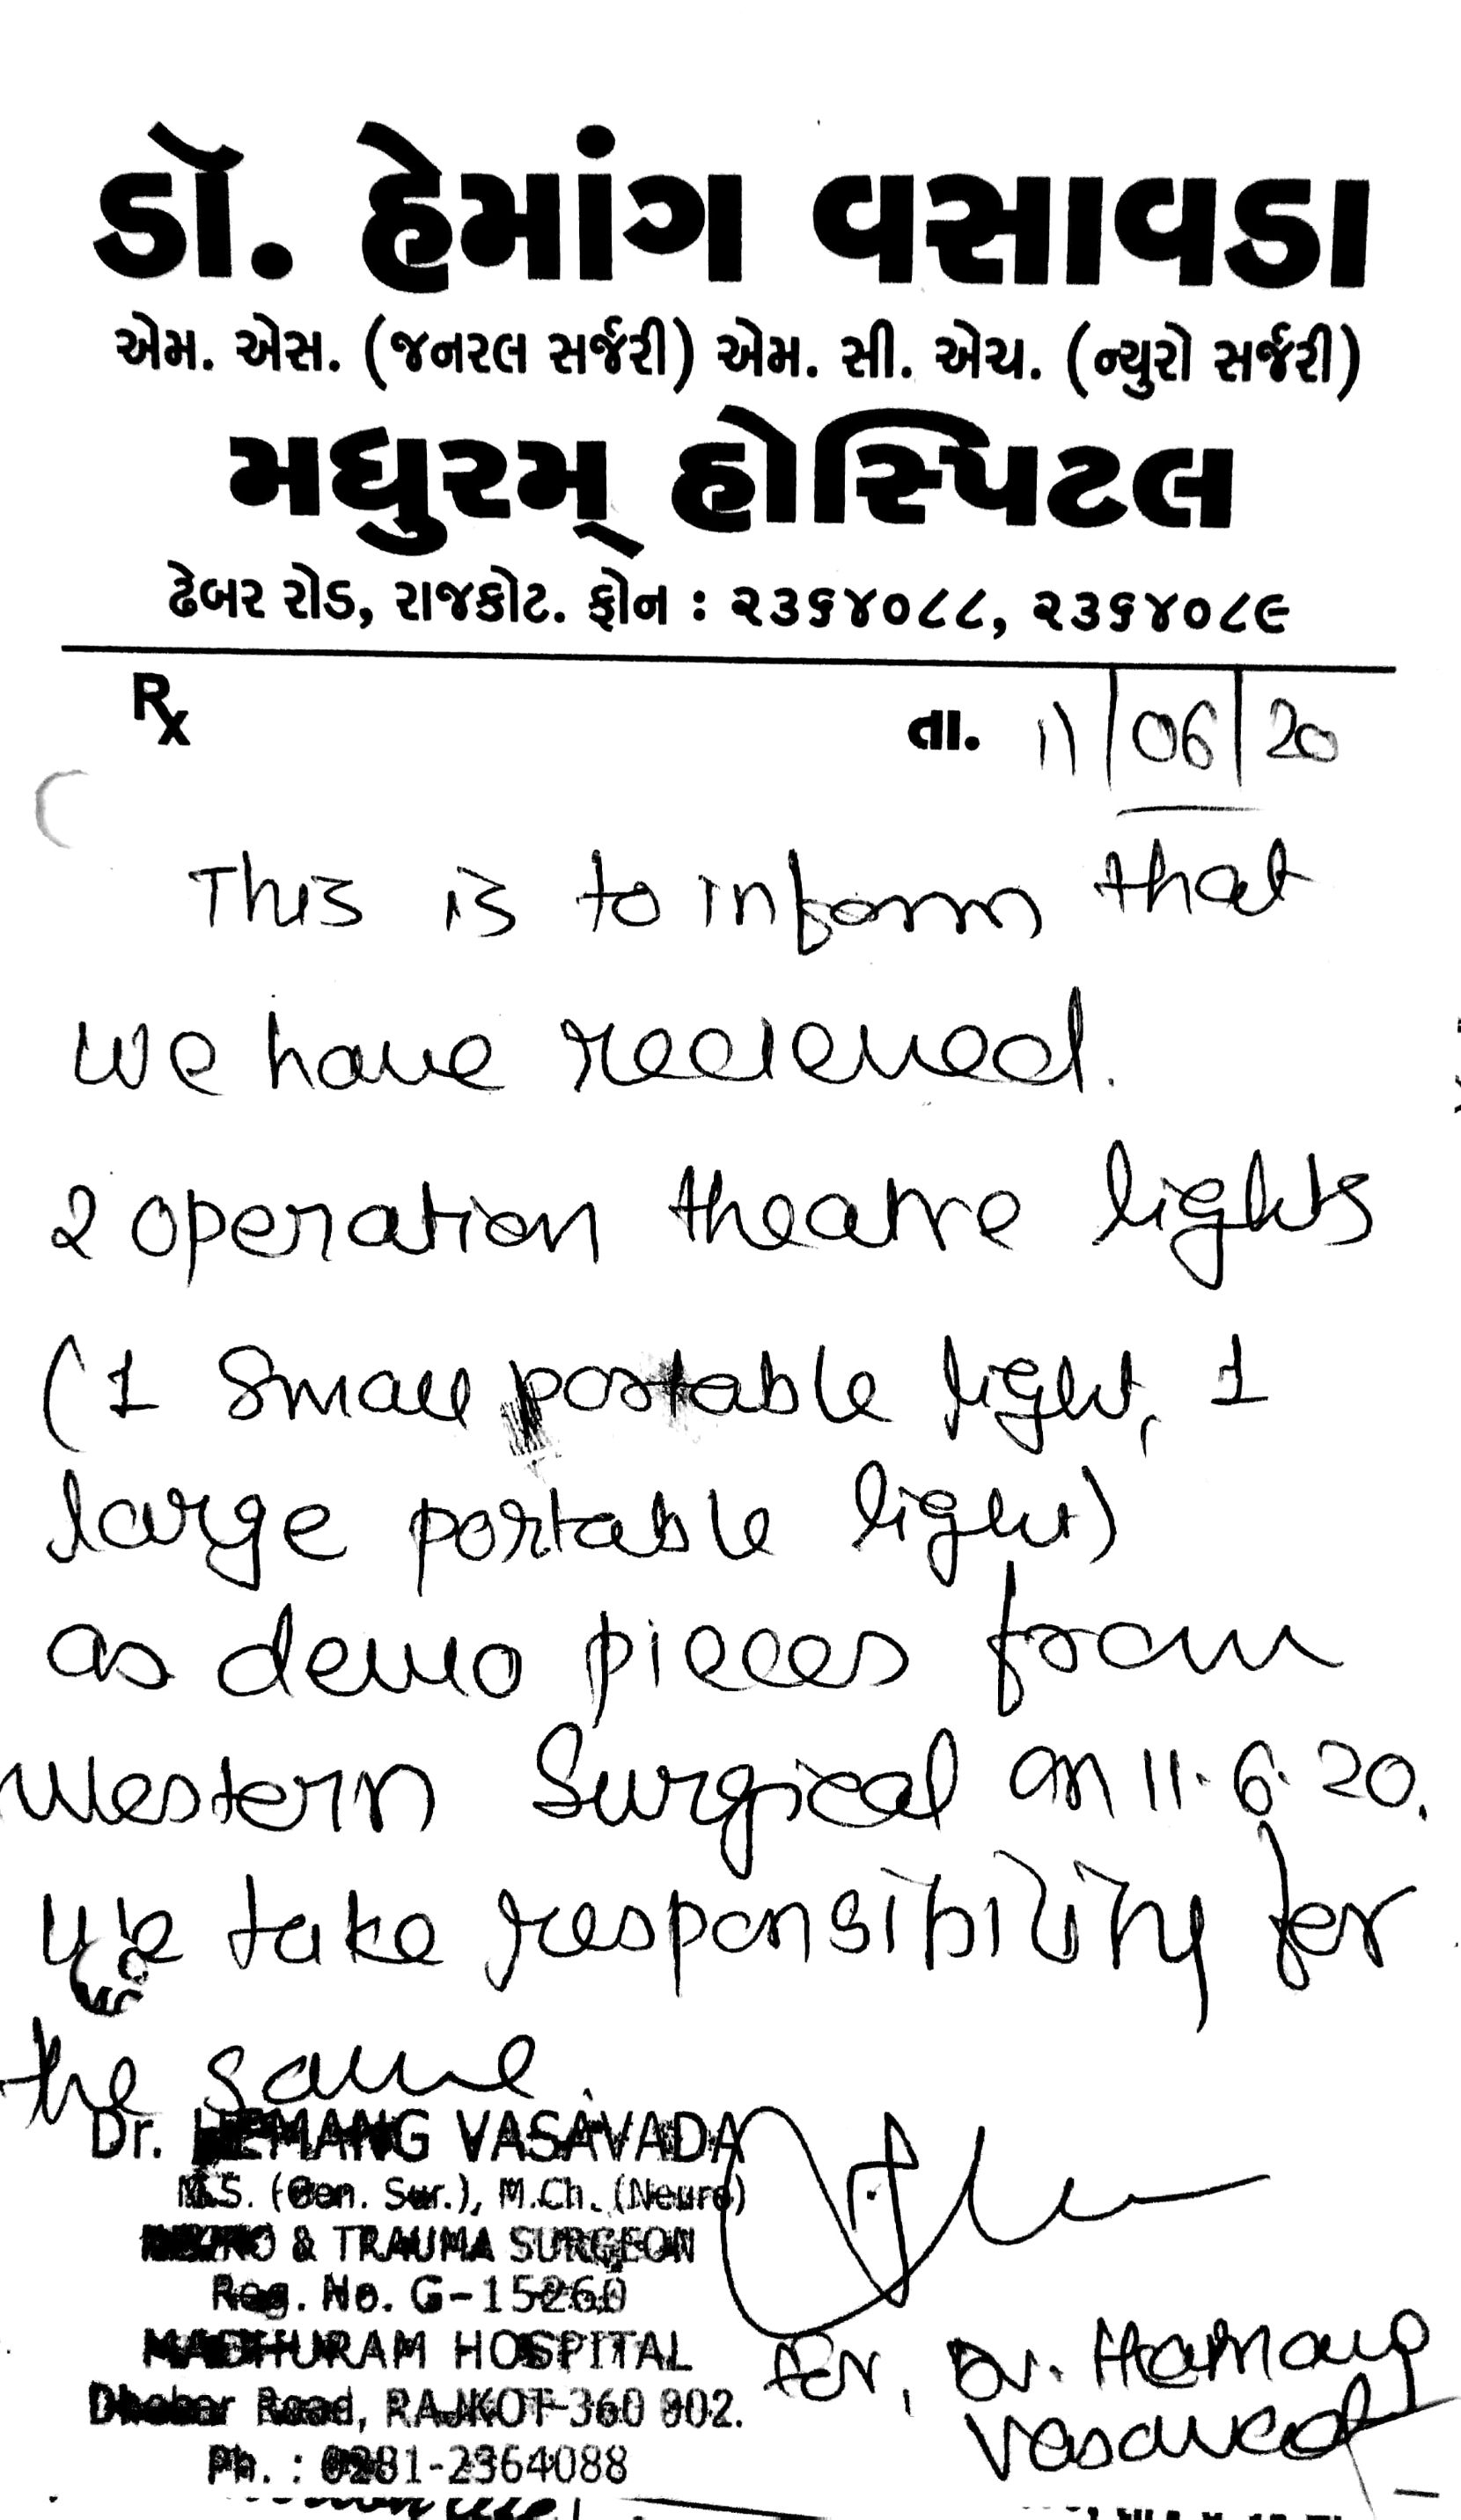 ડૉ. હેમાંગ વસાવડા
એમ. એસ. (જનરલ સર્જરી) એમ. સી. એચ. (ન્યુરો સર્જરી)
મધુરમ્ હોસ્પિટલ
ઢેબર રોડ, રાજકોટ. ફોન : ૨૩૬૪૦૮૮, ૨૩૬૪૦૮૯
Rx તા. 11/06/20
This is to inform that
we have recieved.
2 operation theatre lights
(1 small portable light, 1
large portable light)
as demo pieces from
Western Surgical on 11.6.20.
We take responsibility for
the same.
Dr. HEMANG VASAVADA
M.S. (Gen. Sur.), M.Ch. (Neuro)
NEURO & TRAUMA SURGEON
Reg. No. G-15260
MADHURAM HOSPITAL
Dhebar Road, RAJKOT-360 002.
Ph. : 0281-2364088
For, Dr. Hemang
Vasavada